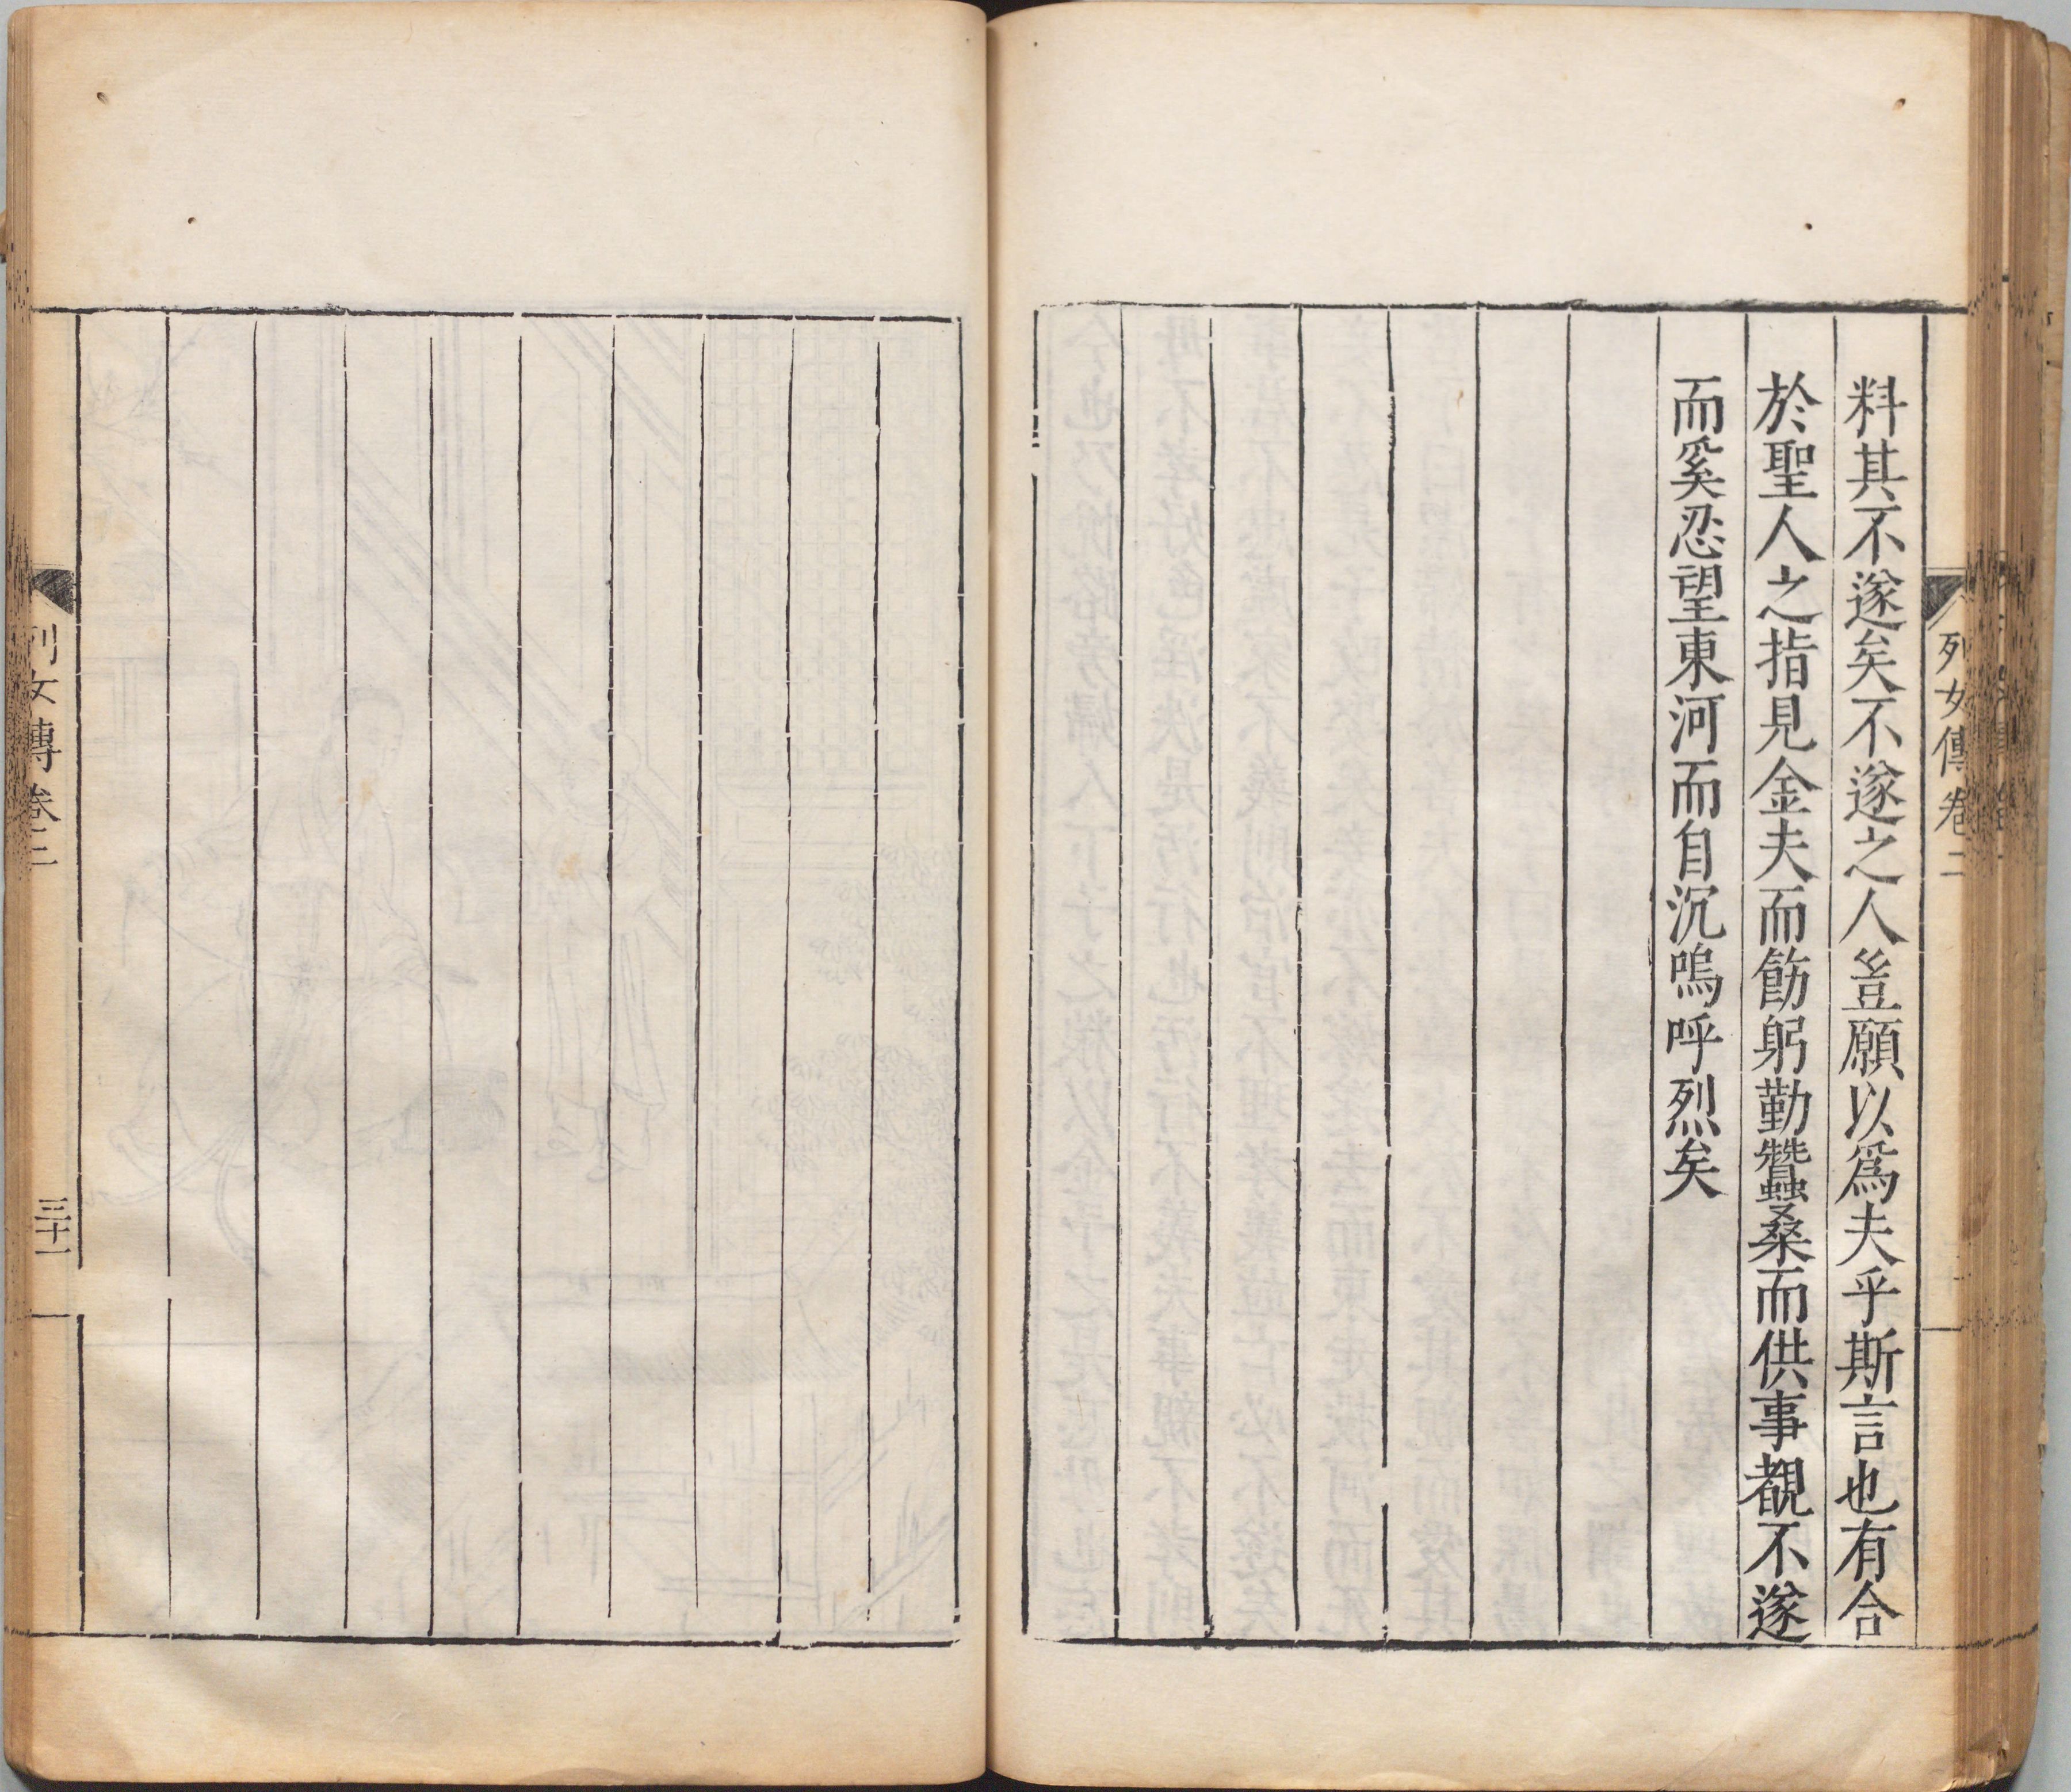 列女傳卷二
料其不遂矣不遂之人豈願以爲夫乎斯言也有合
於聖人之指見金夫而飭躬勤蠶桑而供事覩不遂
而奚忍望東河而自沉嗚呼烈矣
列女傳卷二
三十一